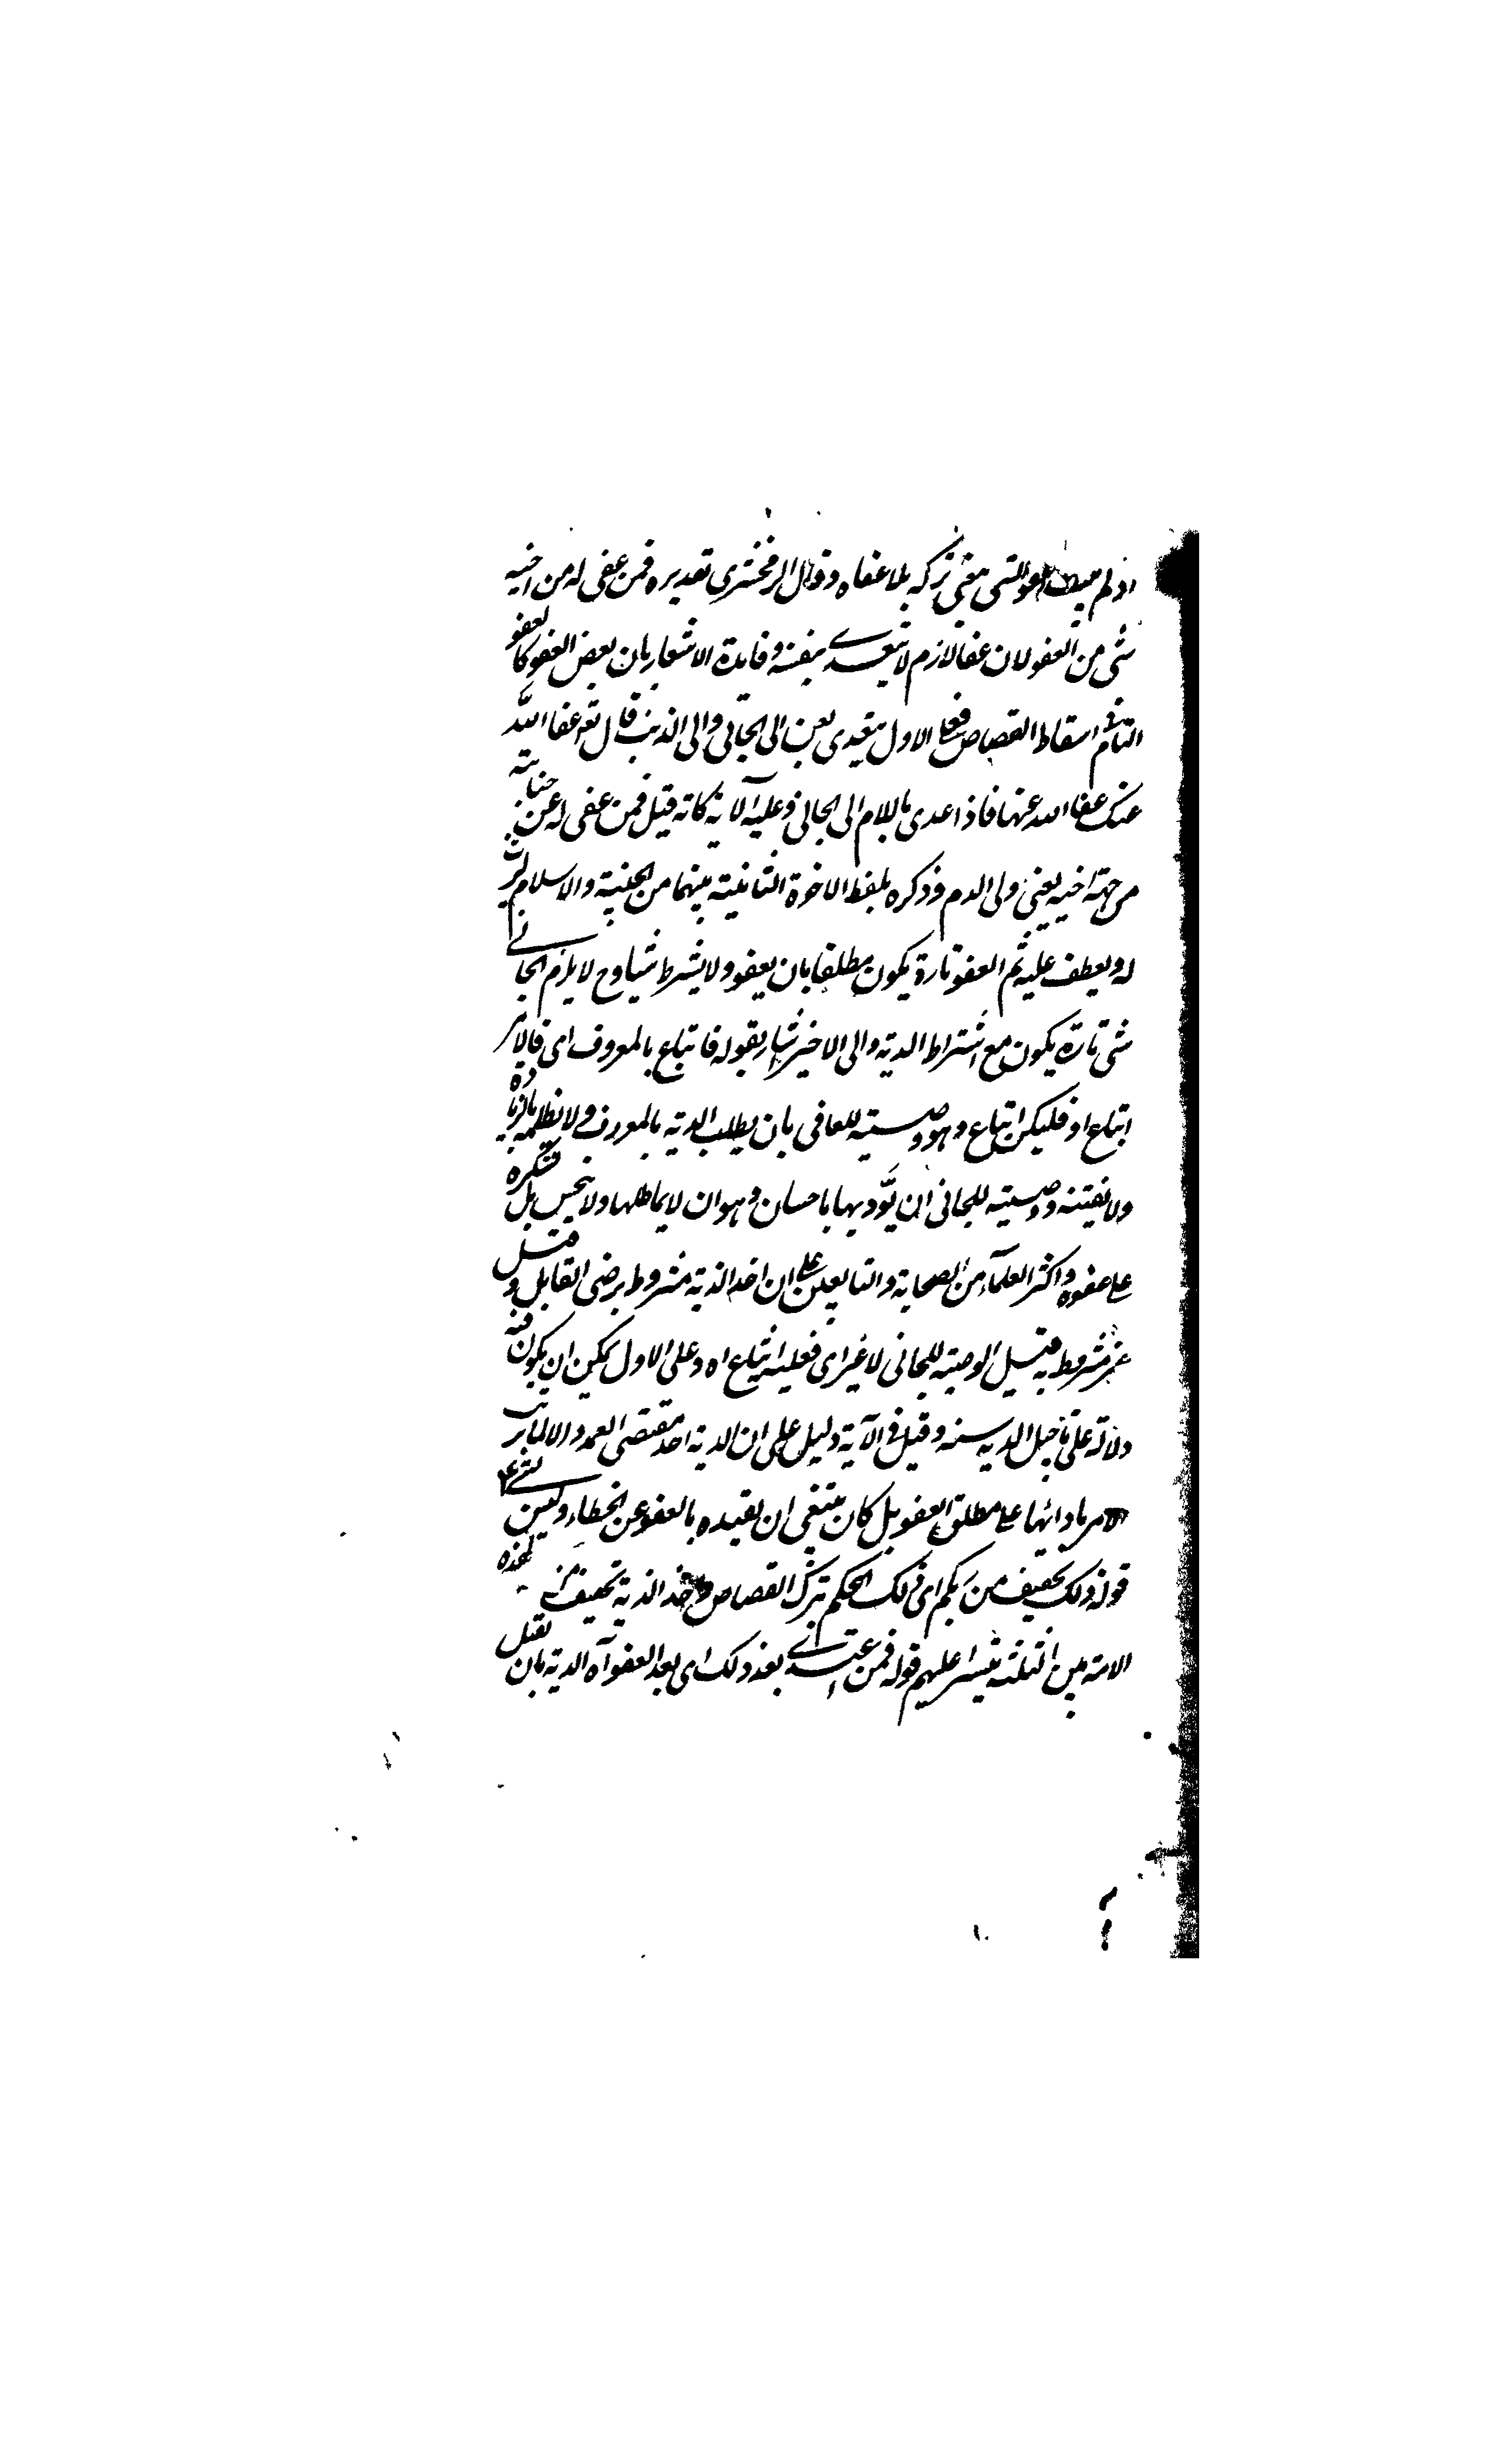 اذ لم عفو الشى معنى تركه بلا عفاه وقال الزمخشرى تقديره فمن عفى له من اخيه
شى من العفو لان عفا لازم لا يتعدى بنفسه وفايدة الاشعار بان بعض العفو كالعفو
التام فى اسقاط القصاص فعلى الاول يتعدى بعن الى الجانى والى الذنب قال تعالى عفا الله
عنك عفا الله عنها فاذا عدى باللام الى الجانى وعليه الآية كانه قيل فمن عفى له عن جنايته
من جهة اخيه يعنى ولى الدم وذكره بلفظ الاخوة الثابتة بينهما من الجنسية والاسلام ليرق
له ويعطف عليه ثم العفو تارة يكون مطلقا بان يعفو ولا يشرط شيا وح لا يلزم الجانى
شى تارة يكون مع اشتراط الدية والى الاخير اشار بقوله فاتباع بالمعروف اى فالامر
اتباع او فليكن اتباع وهو وصية للعافى بان يطلب الدية بالمعروف ولا يظلمه بالزيادة
ولا يعنته ووصية للجانى ان يؤديها باحسان وهو ان لا يماطلها ولا يبخس بل تشكره
على عفوه واكثر العلمآء من الصحابة والتابعين على ان اخذ الدية مشروط برضى القاتل وقيل
غير مشروط به قيل الوصية للجانى لا غير اى فعليه اتباع اه وعلى الاول يمكن ان يكون فيه
دلالة على تاجيل الدية سنه وقيل فى الآية دليل على ان الدية احد مقتضى العمد والا لما رتب
الامر بادائها على مطلق العفو بل كان ينبغى ان يقيده بالعفو عن الخطاء وليس بشئ
قوله ذلك تخفيف من ربكم اى ذلك الحكم بترك القصاص واخذ الدية تخفيف من لهذه
الامة بين الثلثة تيسيرا عليهم قوله فمن اعتدى بعد ذلك اى بعد العفو الدية بان يقتل